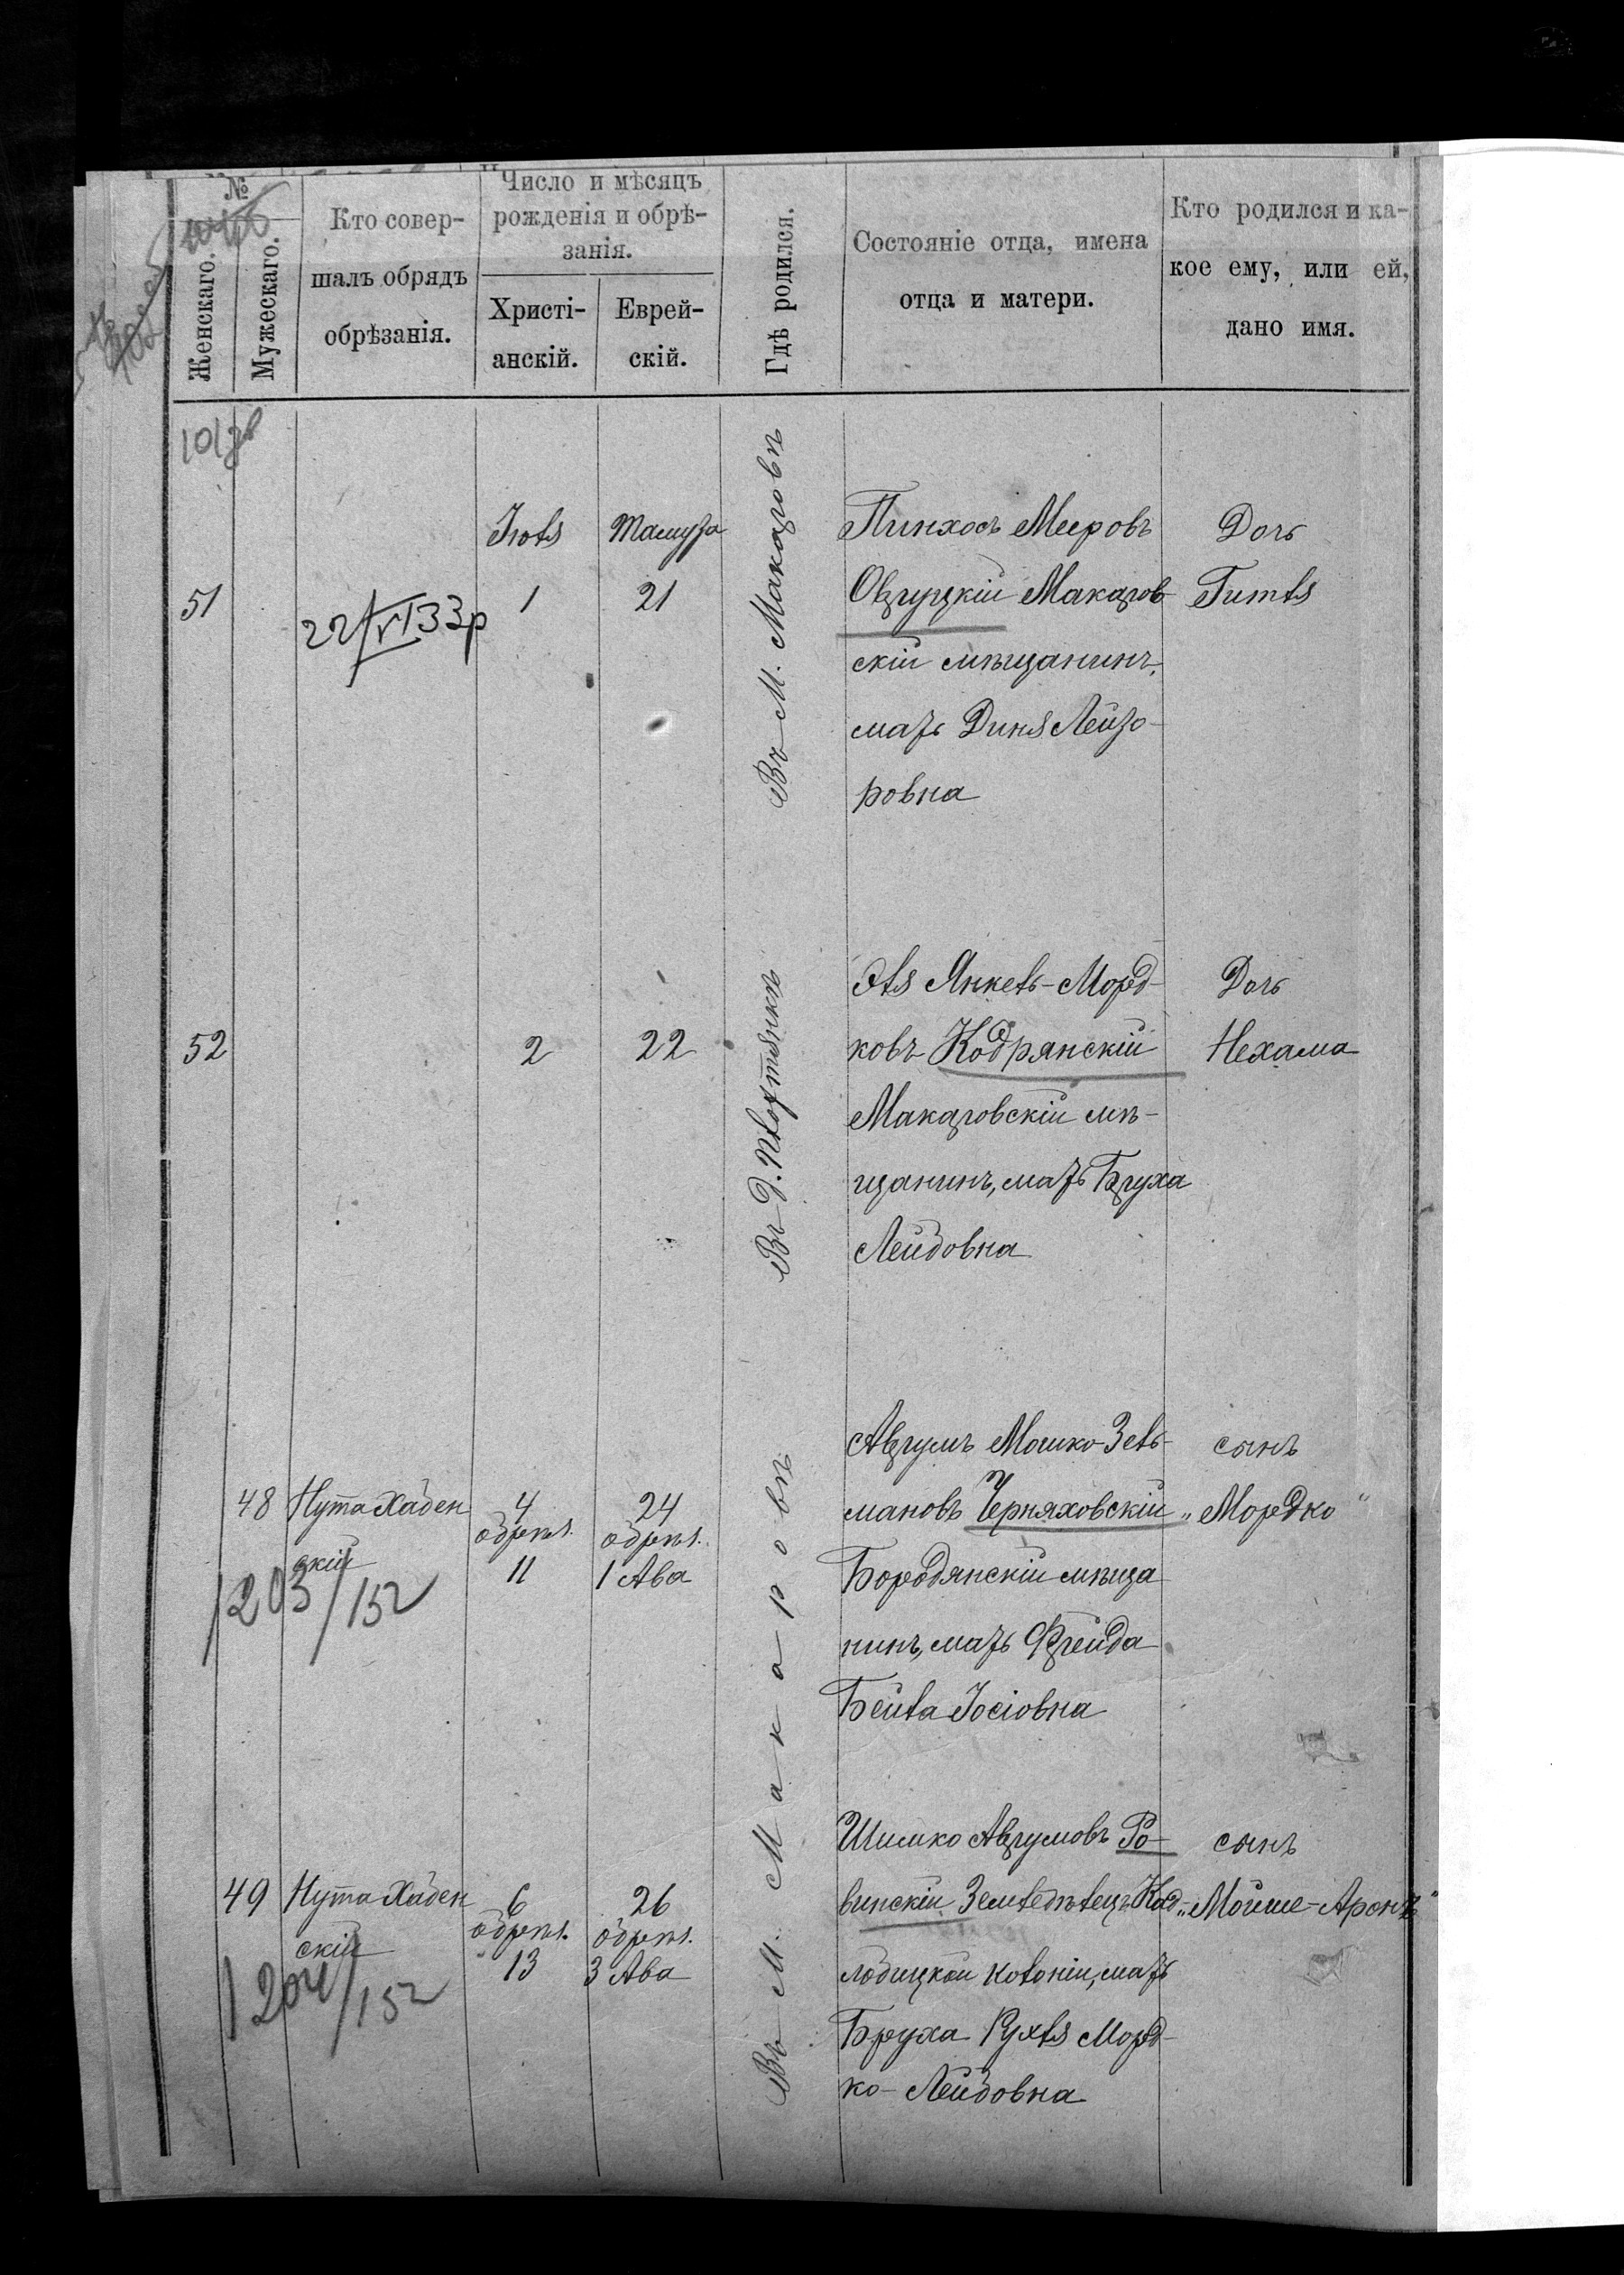 №
Женскаго.
Мужескаго.
Кто совер-
шалъ обрядъ
обрѣзанія.
Число и мѣсяцъ
рожденія и обрѣ-
занія.
Христі-
анскій.
Еврей-
скій.
Гдѣ родился.
Состояніе отца, имена
отца и матери.
Кто родился и ка-
кое ему, или ей,
дано имя.
51
22/VI 33р
Іюля
1
Тамуза
21
Въ М. Макаровѣ
Пинхосъ Мееровъ
Овруцкій Макаров-
скій мѣщанинъ,
мать Диня Лейзо-
ровна
Дочь
Гитля
52
2
22
Въ д.
Эля Янкель-Морд-
ковъ Кодрянскій
Макаровскій мѣ-
щанинъ, мать Бруха
Лейбовна
Дочь
Нехама
48
Нута Хаден
скій
1203/152
4
обрѣз.
11
24
обрѣз.
1 Ава
Въ М. Макаровѣ
Аврумъ Мошко-Зель-
мановъ Черняховскій
Бородянскій мѣща
нинъ, мать Фрейда
Бейла Іосіовна
сынъ
„Мордко"
49
Нута Хаден
скій
1204/152
6
обрѣз.
13
26
обрѣз.
3 Ава
Шимко Аврумовъ Ро-
винскій Земледѣлецъ Код-
лобицкой колоніи, мать
Бруха Рухля Морд-
ко-Лейбовна
сынъ
„Мойше-Аронъ"